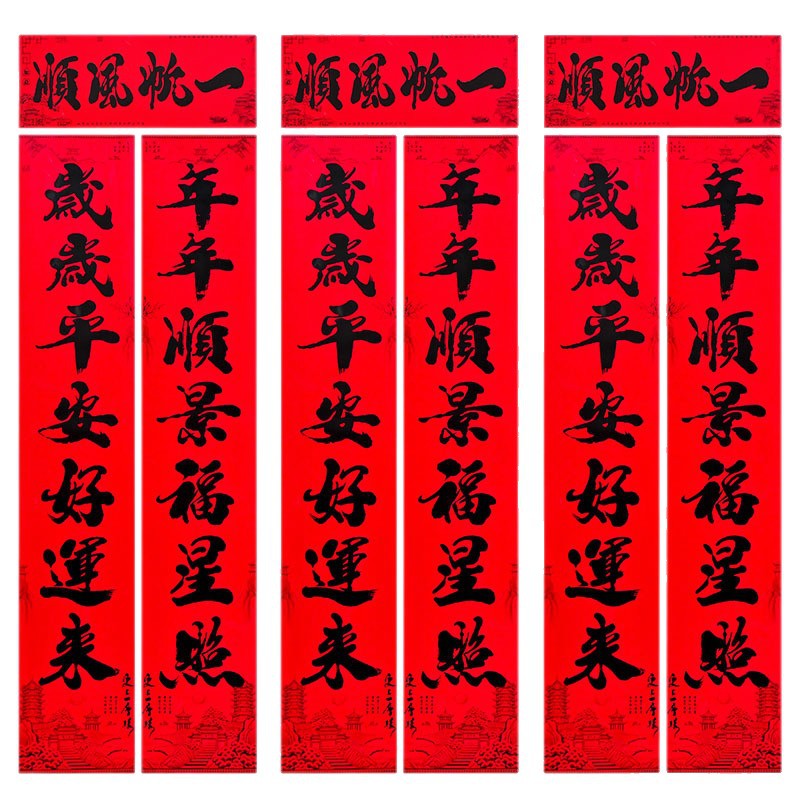 一帆風順
年年順景福星照
歲歲平安好運来
一帆風順
年年順景福星照
歲歲平安好運来
一帆風順
年年順景福星照
歲歲平安好運来